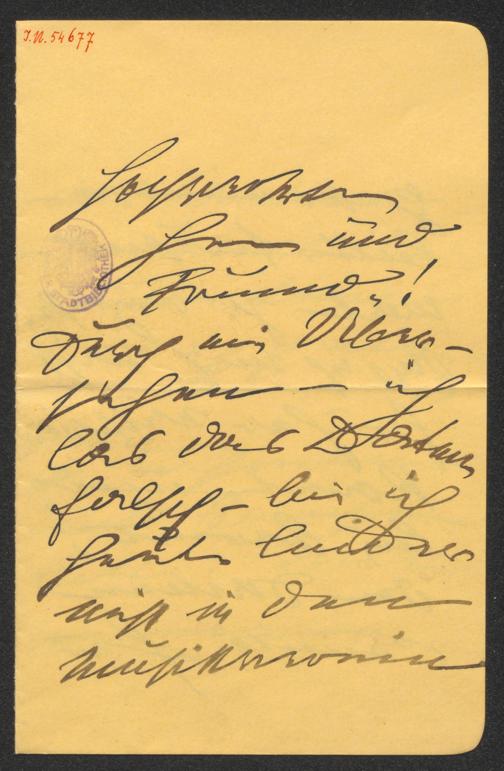 J.N. 54677
Hochverehrter
Herr und
Freund!
Durch ein Über-
sehen – ich
las das Datum
falsch – bin ich
heute leider
nicht in den
Musikverein
STADTBIBLIOTHEK